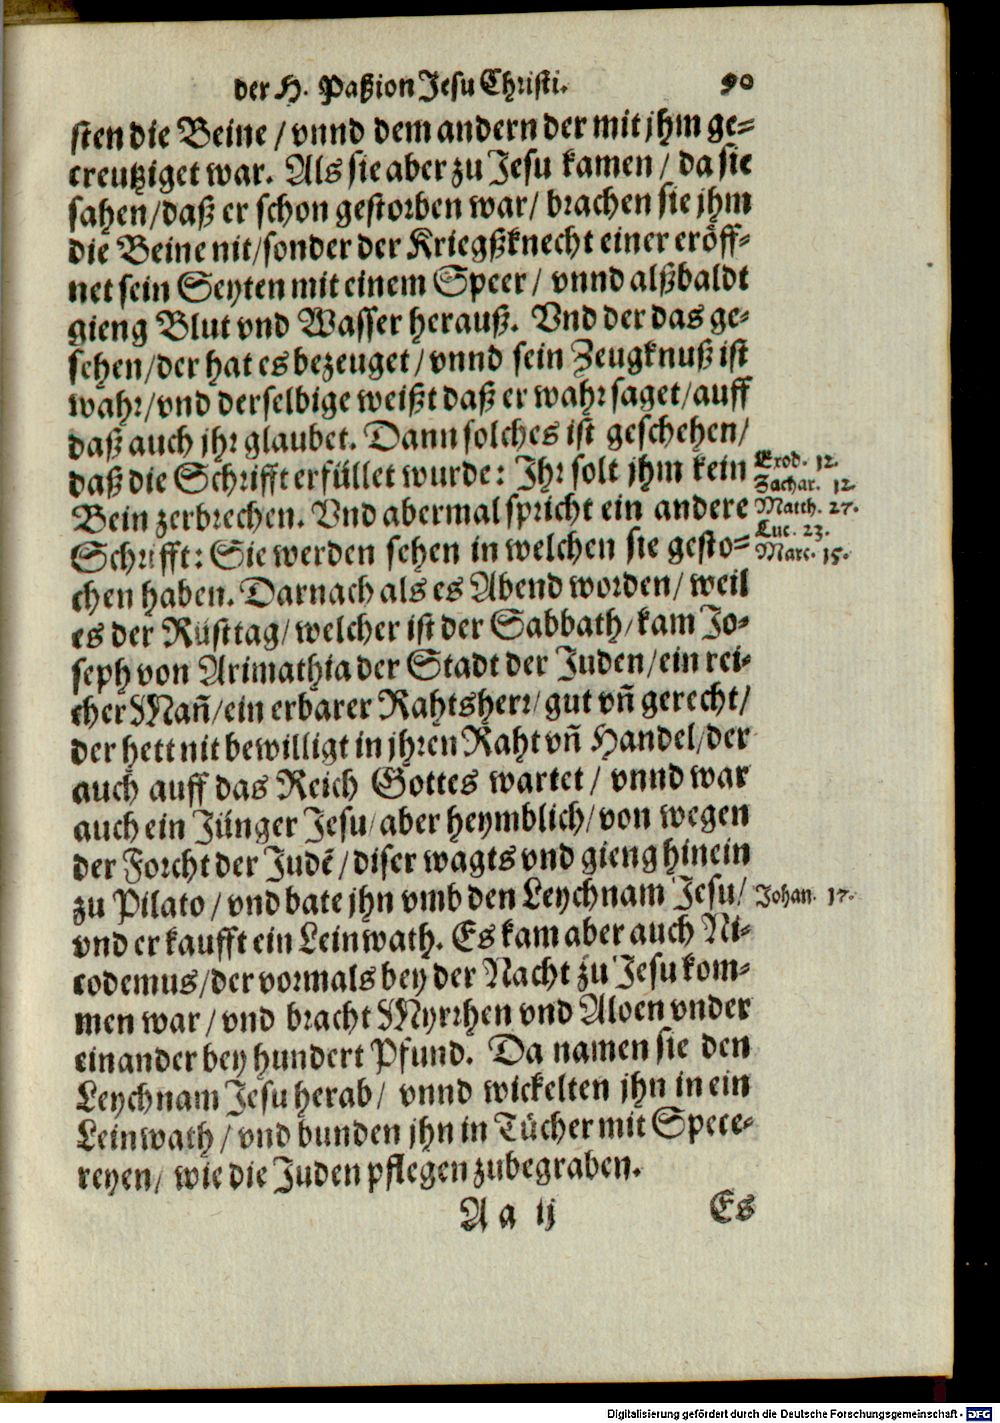 der H. Paßion Jesu Christi. 90
sten die Beine / vnnd dem andern der mit jhm ge-
creutziget war. Als sie aber zu Jesu kamen / da sie
sahen/daß er schon gestorben war/ brachen sie jhm
die Beine nit/sonder der Kriegßknecht einer eröff-
net sein Seyten mit einem Speer / vnnd alßbaldt
gieng Blut vnd Wasser herauß. Vnd der das ge-
sehen/der hat es bezeuget / vnnd sein Zeugknuß ist
wahr/vnd derselbige weißt daß er wahr saget/auff
daß auch jhr glaubet. Dann solches ist geschehen/
daß die Schrifft erfüllet wurde: Jhr solt jhm kein
Exod. 12.
Zachar. 12.
Bein zerbrechen. Vnd abermal spricht ein andere
Matth. 27.
Luc. 23.
Schrifft: Sie werden sehen in welchen sie gesto-
Marc. 15.
chen haben. Darnach als es Abend worden/ weil
es der Rüsttag/ welcher ist der Sabbath/kam Jo-
seph von Arimathia der Stadt der Juden/ein rei-
cher Mañ/ein erbarer Rahtsherr/gut vñ gerecht/
der hett nit bewilligt in jhren Raht vñ Handel/der
auch auff das Reich Gottes wartet / vnnd war
auch ein Jünger Jesu/aber heymblich/von wegen
der Forcht der Judẽ/diser wagts vnd gieng hinein
zu Pilato / vnd bate jhn vmb den Leychnam Jesu/
Johan. 17.
vnd er kaufft ein Leinwath. Es kam aber auch Ni-
codemus/der vormals bey der Nacht zu Jesu kom-
men war / vnd bracht Myrrhen vnd Aloen vnder
einander bey hundert Pfund. Da namen sie den
Leychnam Jesu herab/ vnnd wickelten jhn in ein
Leinwath / vnd bunden jhn in Tücher mit Spece-
reyen/ wie die Juden pflegen zubegraben.
A a ij Es
Digitalisierung gefördert durch die Deutsche Forschungsgemeinschaft - DFG